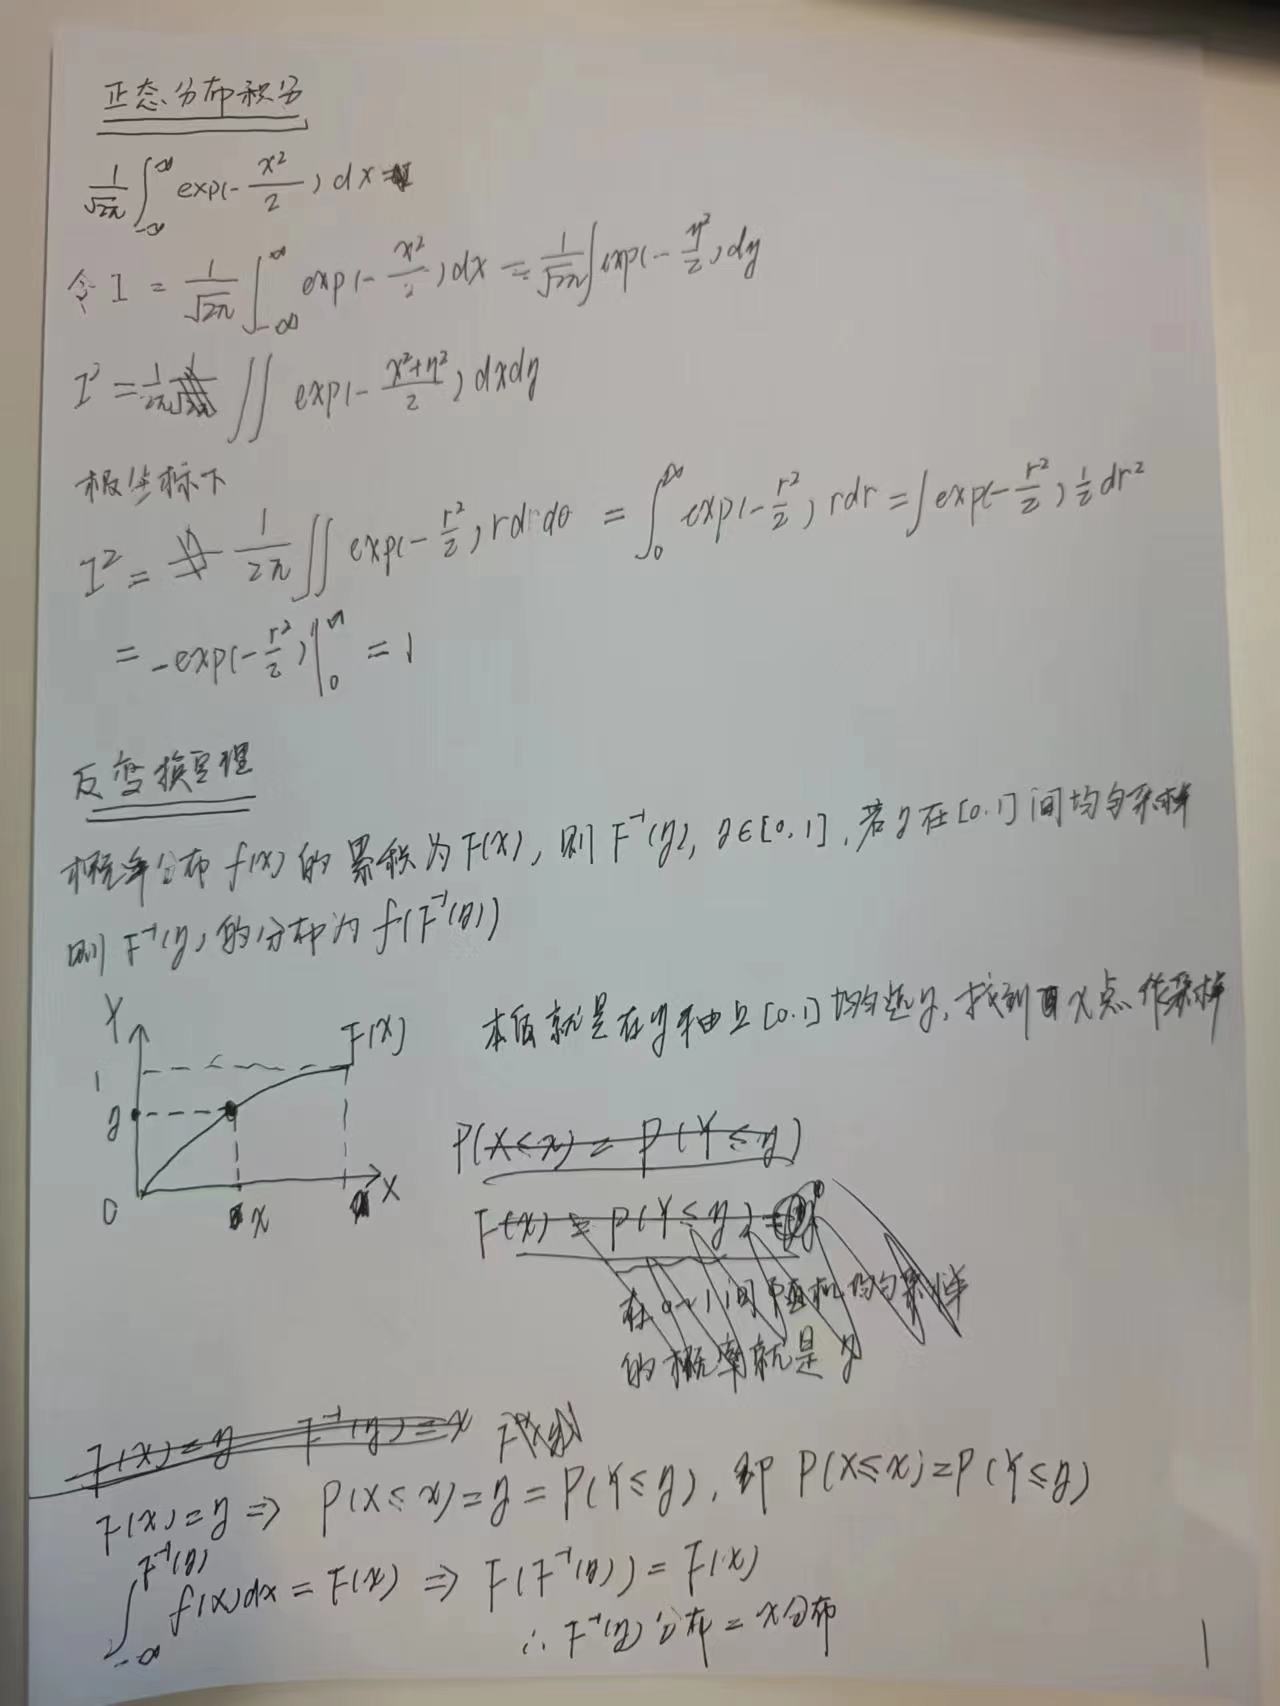 正态分布积分
1/√2π ∫_{-∞}^{∞} exp(-x²/2) dx
令 I = 1/√2π ∫_{-∞}^{∞} exp(-x²/2) dx = 1/√2π ∫ exp(-y²/2) dy
I² = 1/2π ∬ exp(-(x²+y²)/2) dxdy
极坐标下
I² = 1/2π ∬ exp(-r²/2) rdrdθ = ∫_0^∞ exp(-r²/2) rdr = ∫ exp(-r²/2) ½ dr²
= -exp(-r²/2) |_0^∞ = 1
反变换定理
概率分布 f(x) 的累积为 F(x), 则 F⁻¹(y), y∈[0,1], 若 y 在 [0,1] 间均匀采样
则 F⁻¹(y) 的分布为 f(F⁻¹(y))
本质就是在 y 轴上 [0,1] 均匀选 y, 找到 x 点作采样
Y
F(x)
1
y
0
x
X
P(X≤x) = P(Y≤y)
F(x) = P(Y≤y) = y
在 0~1 间随机均匀采样
的概率就是 y
F(x) = y F⁻¹(y) = x
F(x) = y ⇒ P(X≤x) = y = P(Y≤y), 即 P(X≤x) = P(Y≤y)
∫_{-∞}^{F⁻¹(y)} f(x)dx = F(x) ⇒ F(F⁻¹(y)) = F(x)
∴ F⁻¹(y) 分布 = x 分布
1